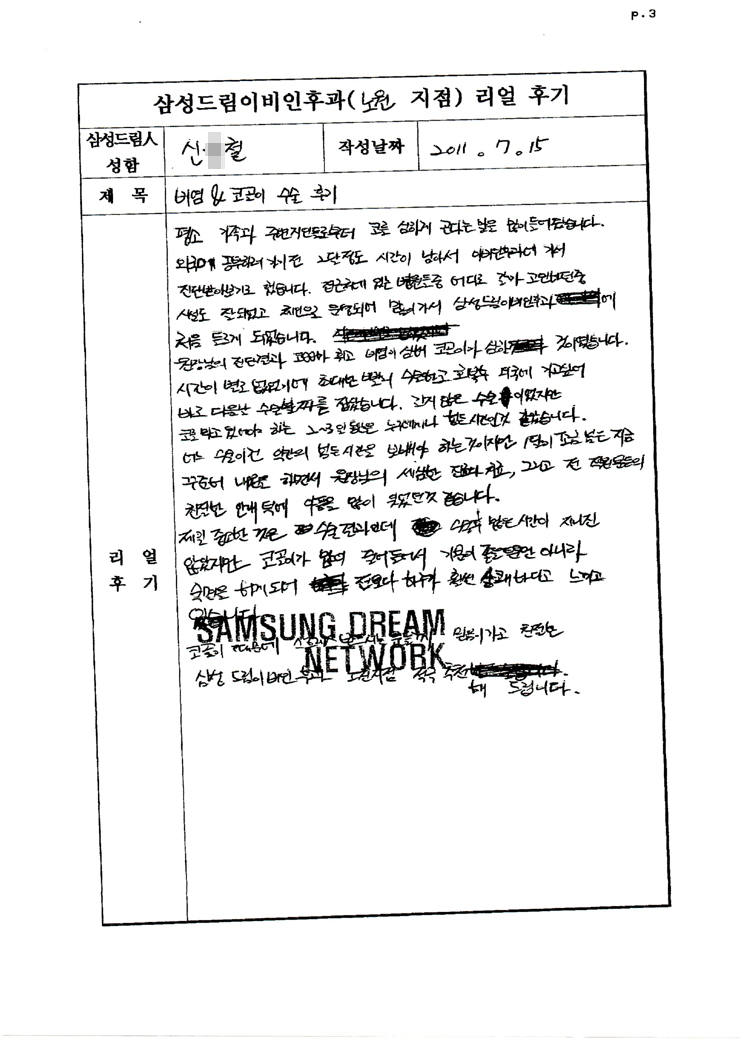 p.3
삼성드림이비인후과(노원 지점) 리얼 후기
삼성드림人 성함
신 철
작성날짜
2011. 7. 15
제 목
비염 & 코골이 수술 후기
리 얼 후 기
평소 가족과 주변지인들로부터 코를 심하게 곤다는 말을 많이 들어왔습니다.
외국에 공부하러 가기 전 2달 정도 시간이 남아서 이비인후과에 가서
진단받아보기로 했습니다. 접근하게 있는 병원들중 어디로 갈까 고민하던중
시설도 잘 되있고 체인으로 운영되어 믿음이가서 삼성드림이비인후과에
처음 들르게 되었습니다.
원장님의 진단결과 휘고 비염이 심해 코골이가 심하 것이였습니다.
시간이 별로 없었기에 최대한 빨리 수술하고 회복후 외국에 가고싶어
바로 다음날 수술날짜를 잡았습니다. 간단치 않은 수술이었지만
코로 막고 있어야 하는 2~3일 동안은 누구에게나 힘든시간인것 같았습니다.
어느 수술이건 약간의 힘든시간을 보내야 하는것이지만 1달이 조금 넘은 지금
꾸준히 내원을 하면서 원장님의 세심한 진료, 그리고 전 직원분들의
친절한 안내 덕에 아픔을 많이 못 느낀것 같습니다.
제일 중요한 것은 수술결과인데 수술후 많은 시간이 지나진
않았지만 코골이가 많이 줄어들어서 가족이 좋을뿐만 아니라
숙면을 하게 되어 전보다 하루가 훨씬 상쾌하다고 느끼고
있습니다
코골이 때문에 분들께 믿음이가고 친절한
삼성드림이비인후과 노원지점 적극 추천
해 드립니다.
SAMSUNG DREAM
NETWORK